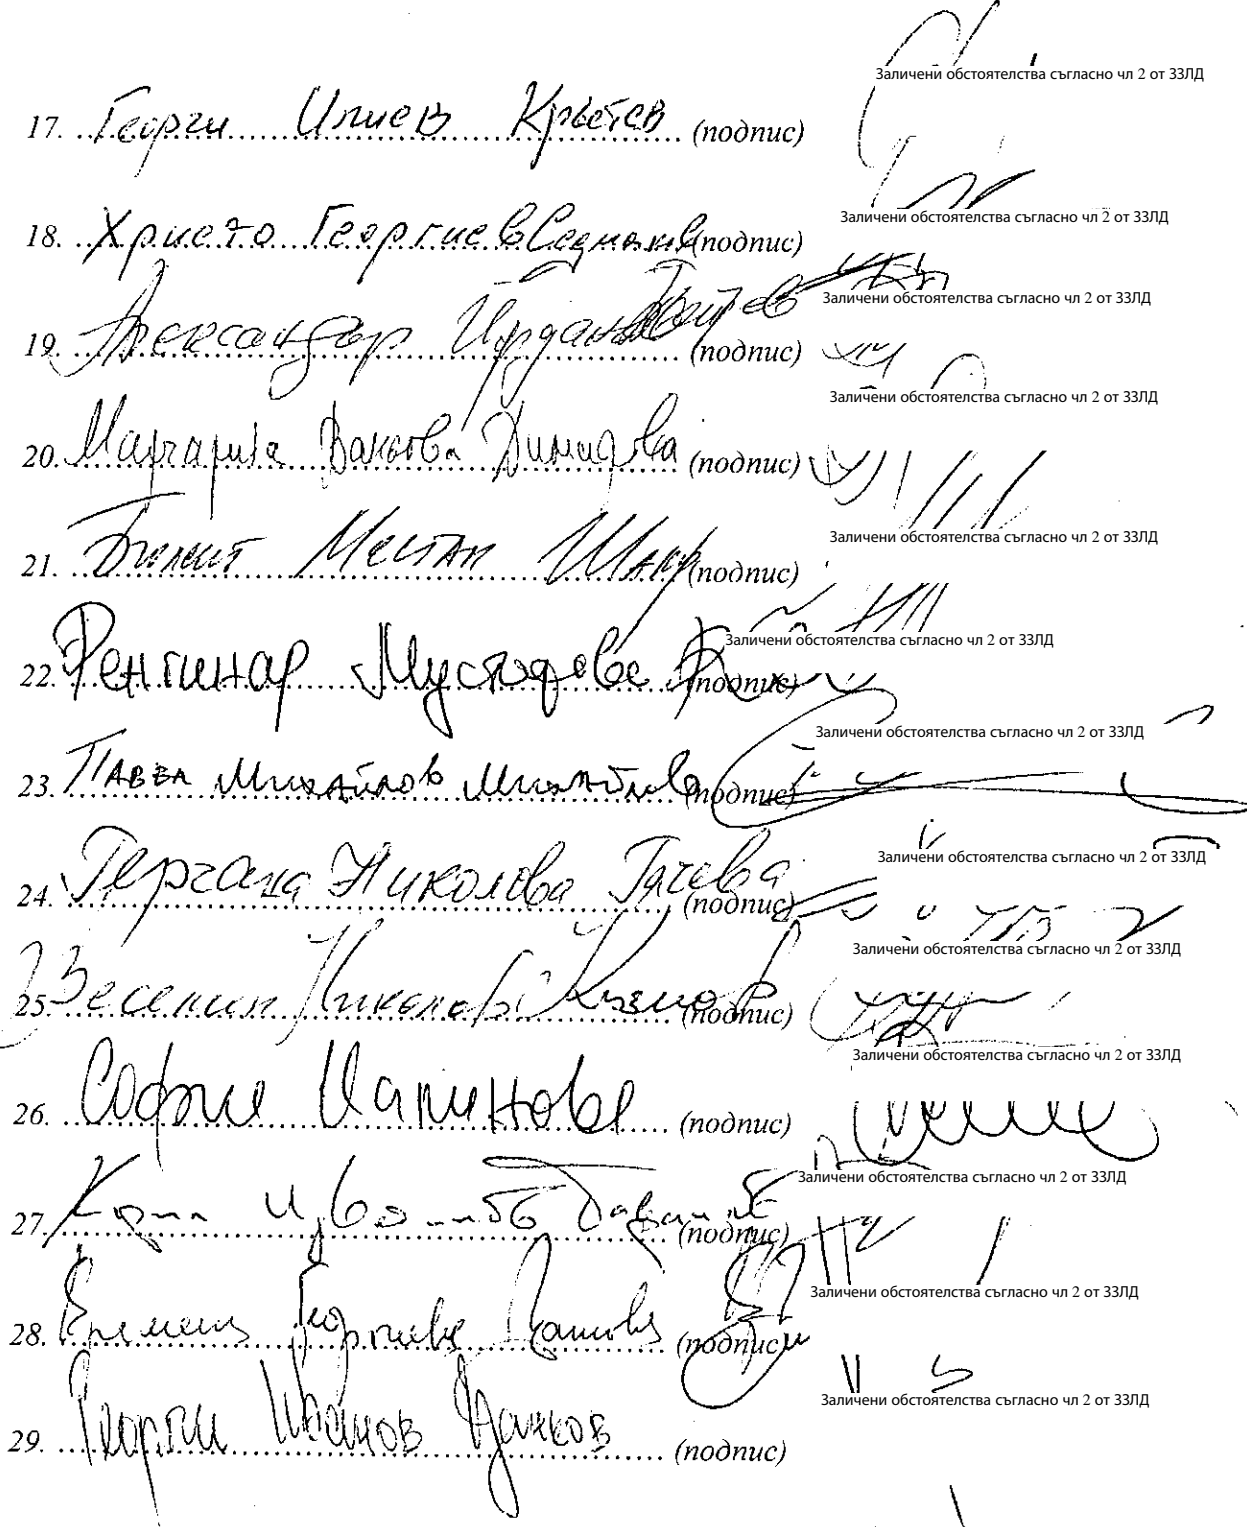 Заличени обстоятелства съгласно чл 2 от ЗЗЛД
17. Георги Илиев Кръстев (подпис)
Заличени обстоятелства съгласно чл 2 от ЗЗЛД
18. Христо Георгиев (подпис)
Заличени обстоятелства съгласно чл 2 от ЗЗЛД
19. Александър Йорданов (подпис)
Заличени обстоятелства съгласно чл 2 от ЗЗЛД
20. Маргарита Димидова (подпис)
Заличени обстоятелства съгласно чл 2 от ЗЗЛД
21. Бюлент Местан (подпис)
Заличени обстоятелства съгласно чл 2 от ЗЗЛД
22. Ренгинар Мустафова (подпис)
Заличени обстоятелства съгласно чл 2 от ЗЗЛД
23. Павел Михайлов Михайлов (подпис)
Заличени обстоятелства съгласно чл 2 от ЗЗЛД
24. Гергана Николова Гачева (подпис)
Заличени обстоятелства съгласно чл 2 от ЗЗЛД
25. Веселин Николов (подпис)
Заличени обстоятелства съгласно чл 2 от ЗЗЛД
26. Софие (подпис)
Заличени обстоятелства съгласно чл 2 от ЗЗЛД
27. (подпис)
Заличени обстоятелства съгласно чл 2 от ЗЗЛД
28. Георгиева (подпис)
Заличени обстоятелства съгласно чл 2 от ЗЗЛД
29. Георги Иванов Данков (подпис)